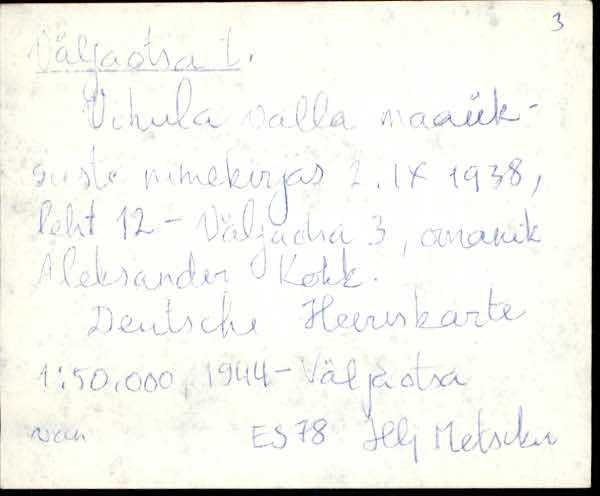 3
Väljaotsa t.
Vihula valla maaük-
suste nimekirjas 2. IX 1938,
leht 12 - Väljaotsa 3, omanik
Aleksander Kokk.
Deutsche Heereskarte
1:50.000, 1944 - Väljaotsa
ES 78